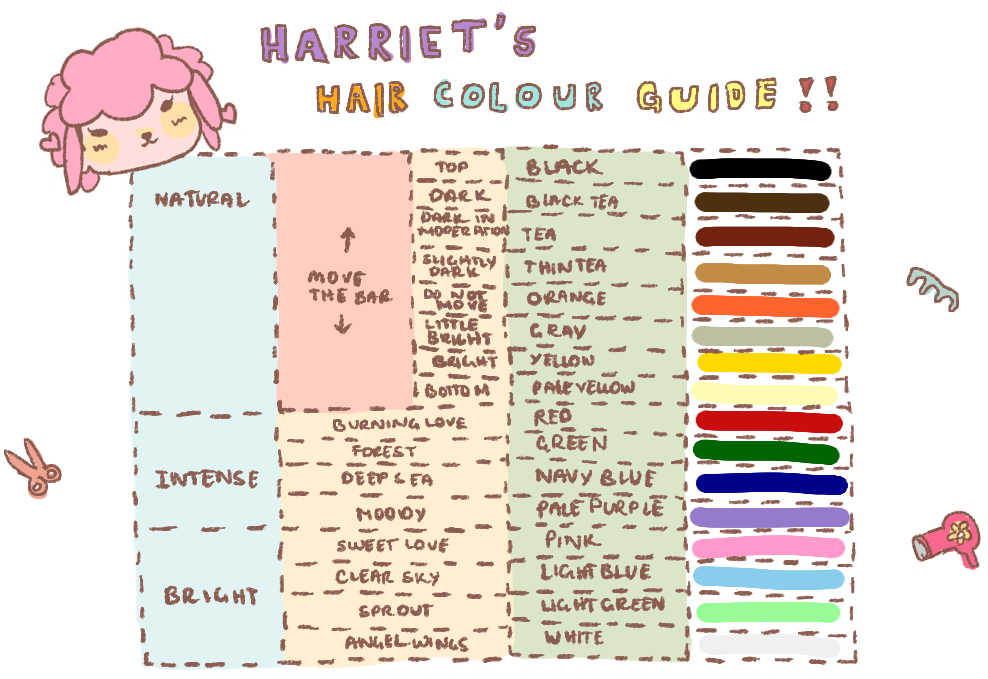 HARRIET'S
HAIR COLOUR GUIDE !!
NATURAL
↑
MOVE
THE BAR
↓
TOP
BLACK
DARK
BLACK TEA
DARK IN
MODERATION
TEA
SLIGHTLY
DARK
THIN TEA
DO NOT
MOVE
ORANGE
LITTLE
BRIGHT
GRAY
BRIGHT
YELLOW
BOTTOM
PALE YELLOW
INTENSE
BURNING LOVE
RED
FOREST
GREEN
DEEP SEA
NAVY BLUE
MOODY
PALE PURPLE
BRIGHT
SWEET LOVE
PINK
CLEAR SKY
LIGHT BLUE
SPROUT
LIGHT GREEN
ANGEL WINGS
WHITE